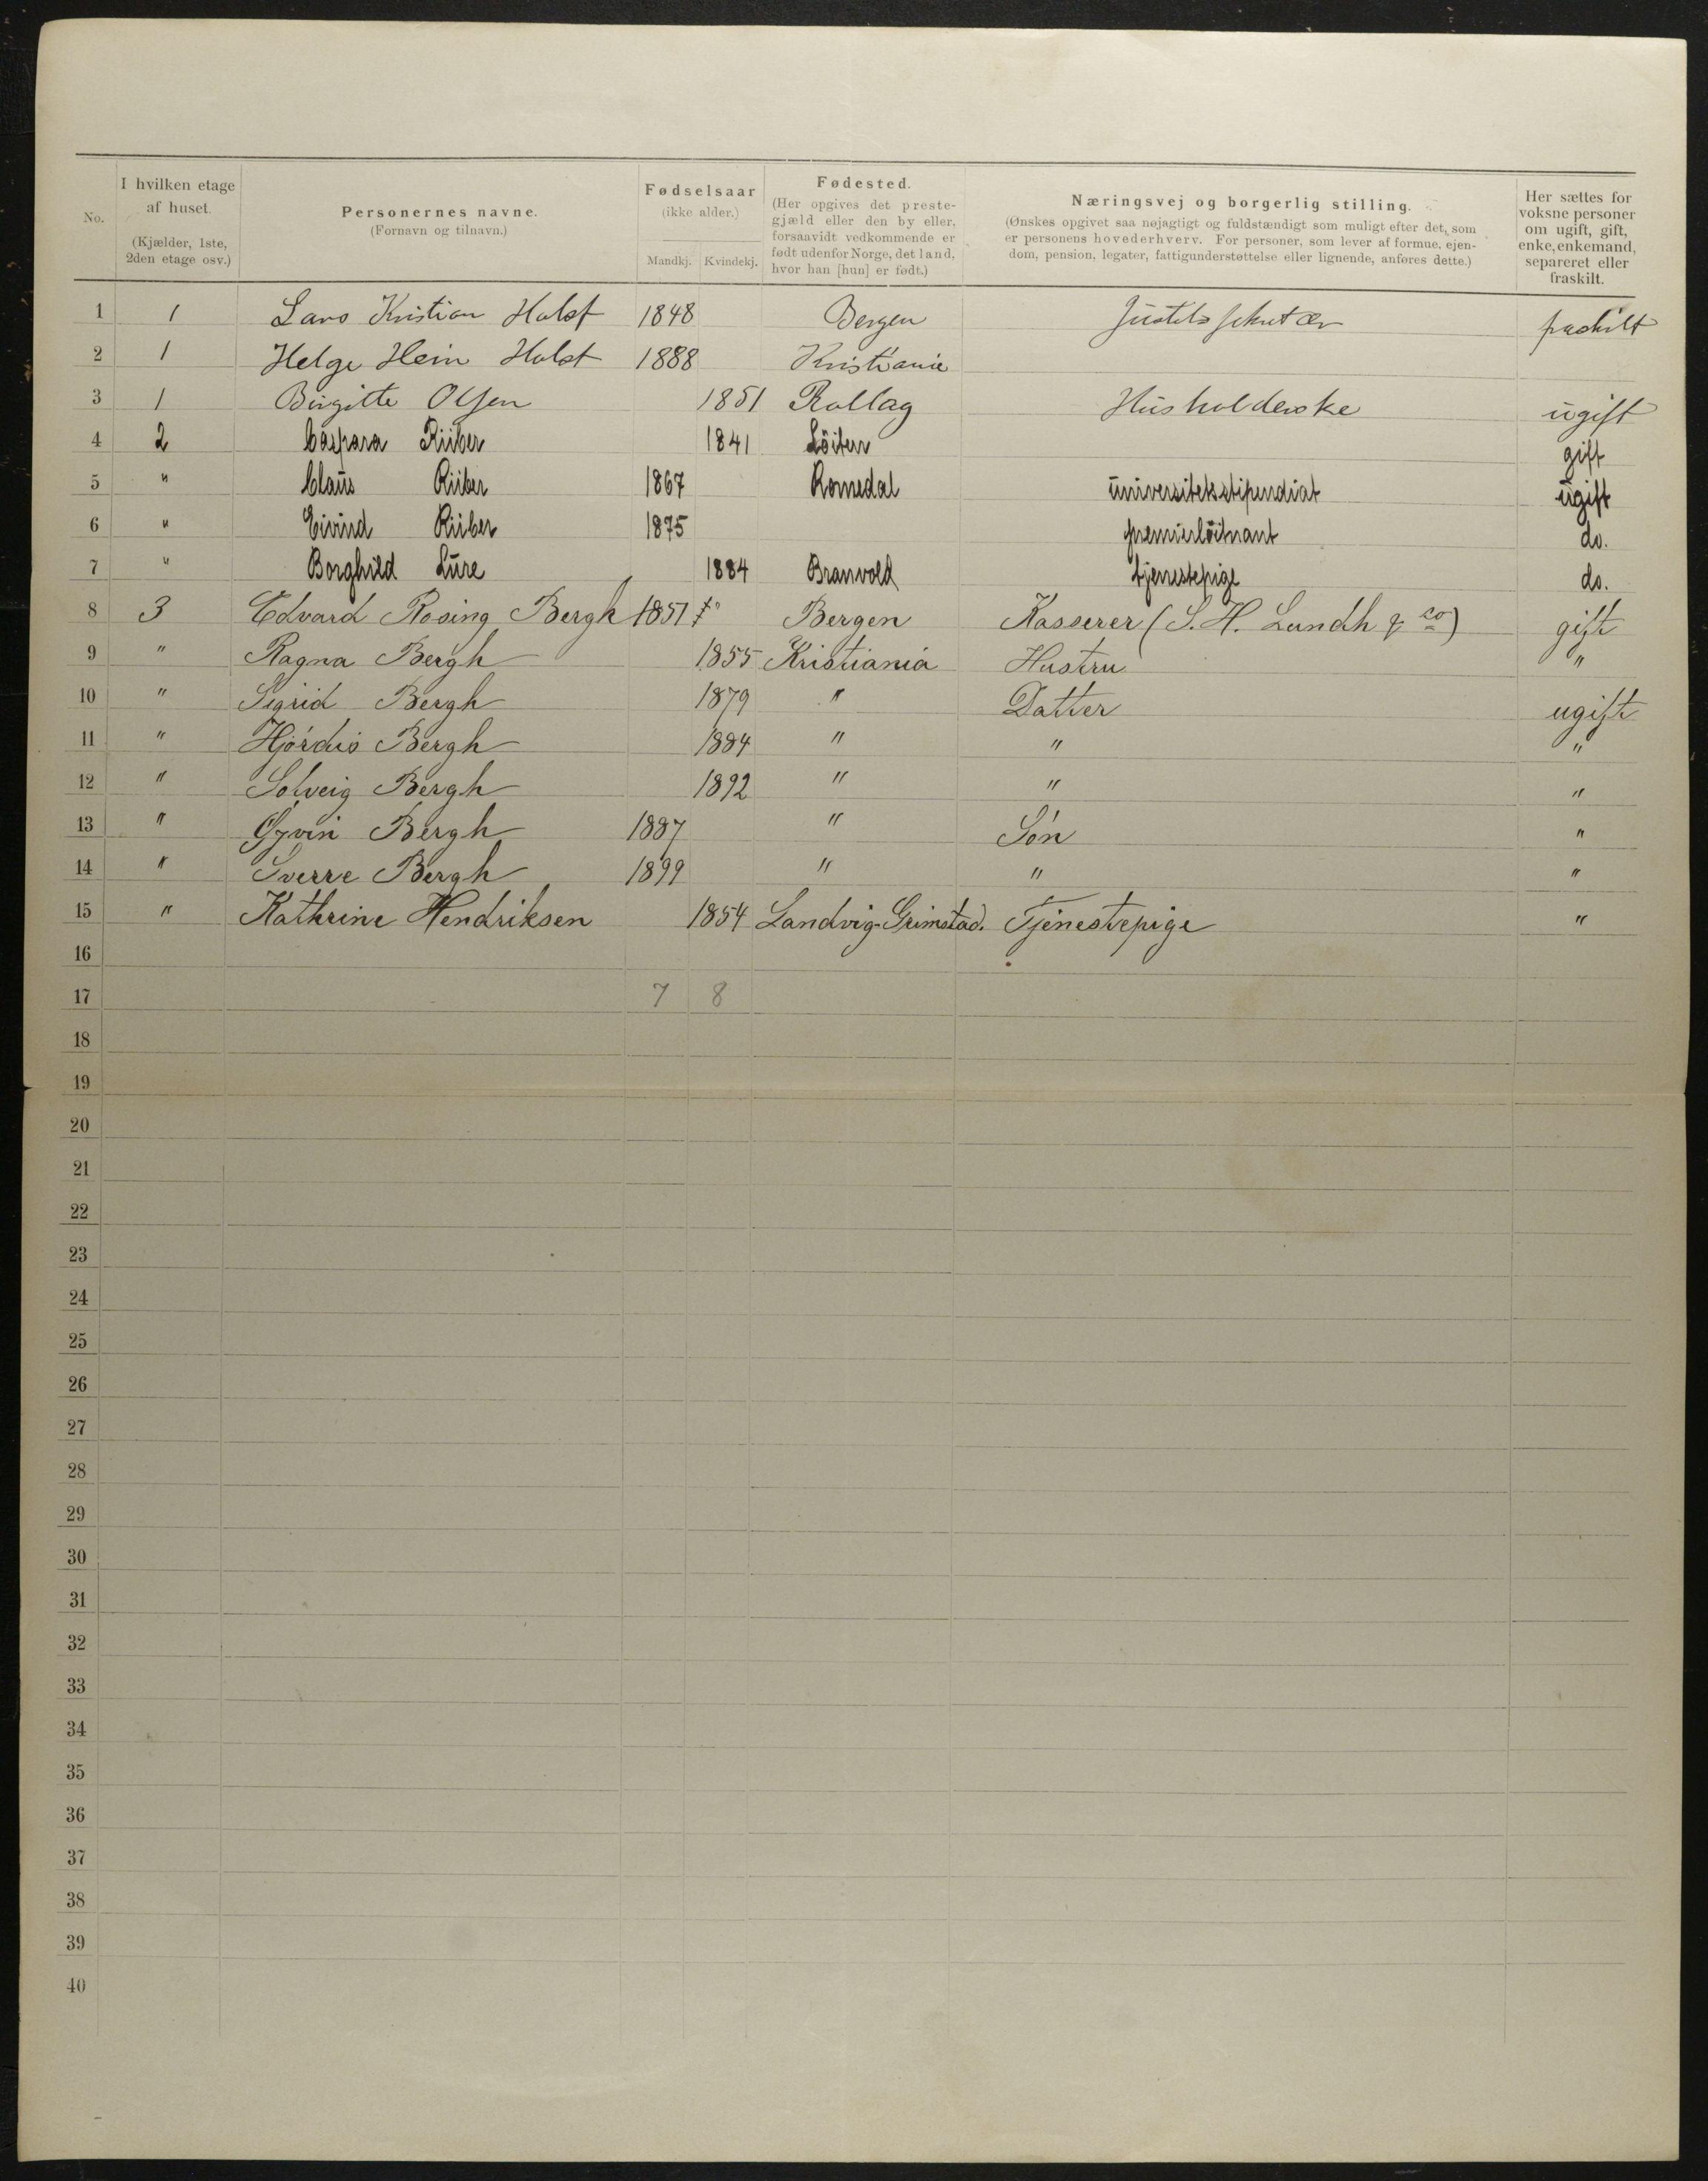 No. | I hvilken etage af huset. (Kjælder, 1ste, 2den etage osv.) | Personernes navne. (Fornavn og tilnavn.) | Fødselsaar (ikke alder.) Mandkj. | Kvindekj. | Fødested. (Her opgives det prestegjæld eller den by eller, forsaavidt vedkommende er født udenfor Norge, det land, hvor han [hun] er født.) | Næringsvej og borgerlig stilling. (Ønskes opgivet saa nøjagtigt og fuldstændigt som muligt efter det, som er personens hovederhverv. For personer, som lever af formue, ejendom, pension, legater, fattigunderstøttelse eller lignende, anføres dette.) | Her sættes for voksne personer om ugift, gift, enke, enkemand, separeret eller fraskilt.
1 1 Lars Kristian Holst 1848 Bergen fraskilt
2 1 Helge Hein Holst 1888 Kristiania
3 1 Birgitte Olsen 1851 Rollag Husholderske ugift
4 2 Caspara Riiber 1841 Löiten gift
5 " Claus Riiber 1867 Romedal universitetsstipendiat ugift
6 " Eivind Riiber 1875 premierlöitnant do.
7 " Borghild Lure 1884 Branvold tjenestepige do.
8 3 Edvard Rosing Bergh 1851 Bergen Kasserer (S. H. Lundh & co) gift
9 " Ragna Bergh 1855 Kristiania Hustru "
10 " Sigrid Bergh 1879 " Datter ugift
11 " Hjördis Bergh 1884 " " "
12 " Solveig Bergh 1892 " " "
13 " Øyvin Bergh 1887 " Sön "
14 " Sverre Bergh 1899 " " "
15 " Kathrine Hendriksen 1854 Landvig-Grimstad. Tjenestepige "
16
17 7 8
18
19
20
21
22
23
24
25
26
27
28
29
30
31
32
33
34
35
36
37
38
39
40